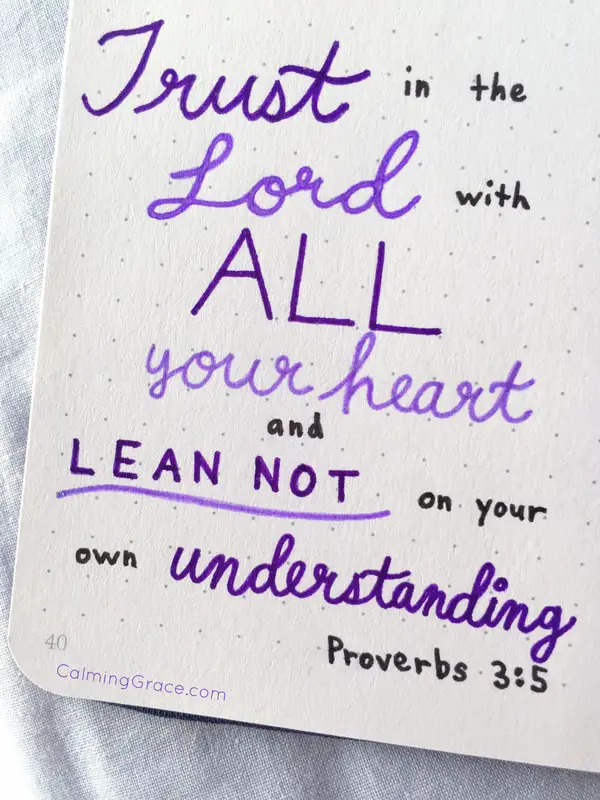 Trust in the
Lord with
ALL
your heart
and
LEAN NOT on your
own understanding
Proverbs 3:5
40
CalmingGrace.com